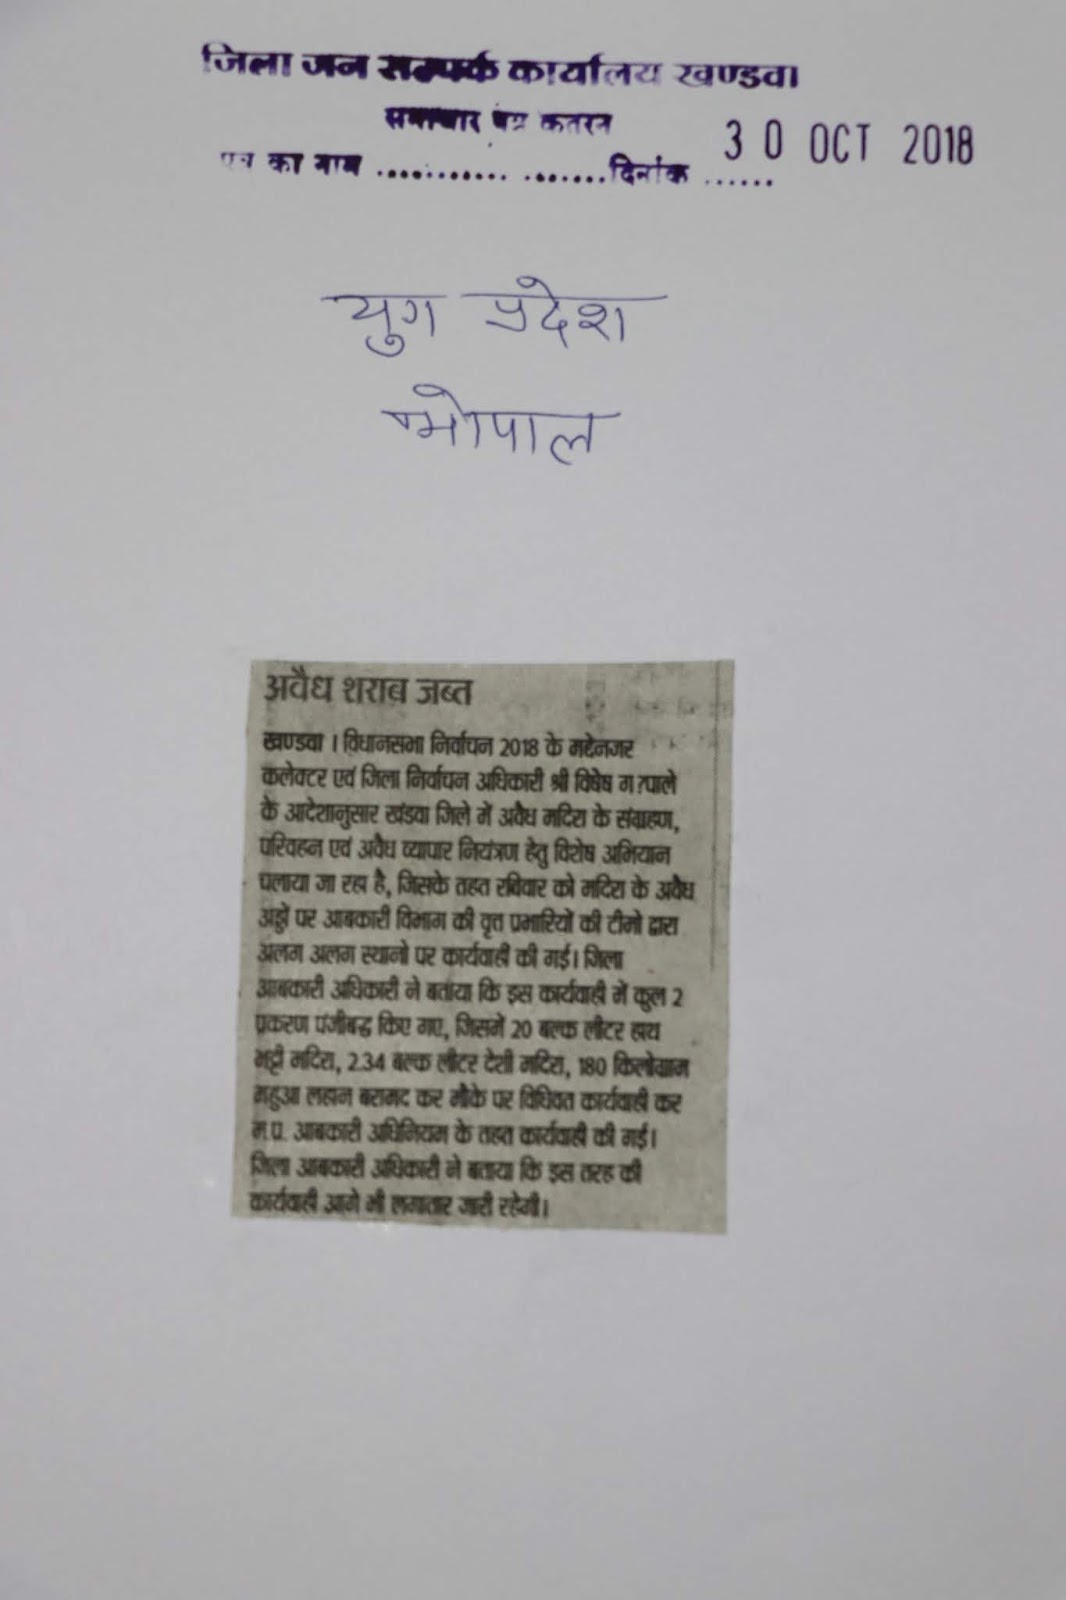 जिला जन सम्पर्क कार्यालय खण्डवा
समाचार पत्र कतरन
पत्र का नाम .................... दिनांक ......
30 OCT 2018
युग प्रदेश
भोपाल
अवैध शराब जब्त
खण्डवा । विधानसभा निर्वाचन 2018 के मद्देनजर
कलेक्टर एवं जिला निर्वाचन अधिकारी श्री विषेष ग
के आदेशानुसार खंडवा जिले में अवैध मदिरा के संग्रहण,
परिवहन एवं अवैध व्यापार नियंत्रण हेतु विशेष अभियान
चलाया जा रहा है, जिसके तहत रविवार को मदिरा के अवैध
अड्डों पर आबकारी विभाग की वृत्त प्रभारियों की टीमो द्वारा
अलग अलग स्थानो पर कार्यवाही की गई। जिला
आबकारी अधिकारी ने बताया कि इस कार्यवाही में कुल 2
प्रकरण पंजीबद्ध किए गए, जिसमें 20 बल्क लीटर हाथ
भट्टी मदिरा, 2.34 बल्क लीटर देशी मदिरा, 180 किलोग्राम
महुआ लहान बरामद कर मौके पर विधिवत कार्यवाही कर
म.प्र. आबकारी अधिनियम के तहत कार्यवाही की गई।
जिला आबकारी अधिकारी ने बताया कि इस तरह की
कार्यवाही आगे भी लगातार जारी रहेगी।